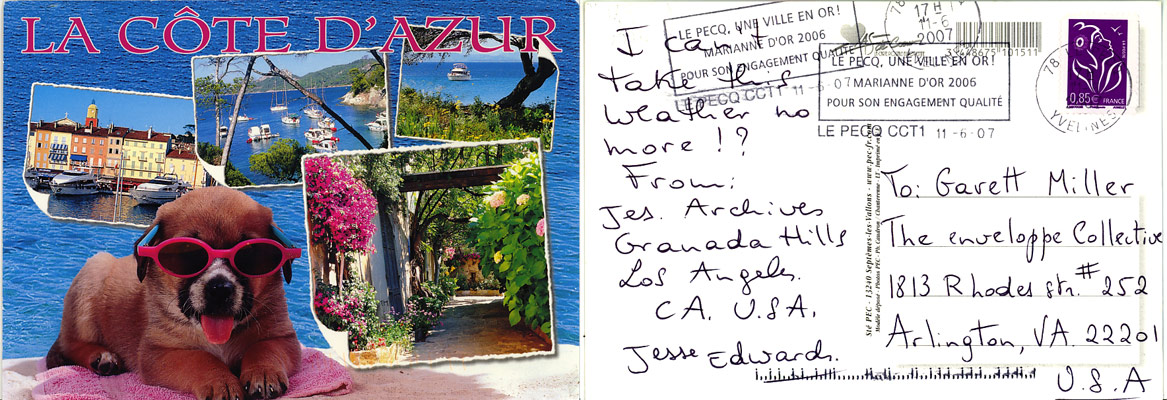 LA CÔTE D'AZUR
I can't
take this
weather no
more !?
From:
Jes. Archives
Granada Hills
Los Angeles.
CA. U.S.A.
Jesse Edwards.
LE PECQ, UNE VILLE EN OR!
MARIANNE D'OR 2006
POUR SON ENGAGEMENT QUALITÉ
LE PECQ CCT1 11-6-07
78
17 H
11-6
2007
3 101511
LE PECQ, UNE VILLE EN OR!
MARIANNE D'OR 2006
POUR SON ENGAGEMENT QUALITÉ
LE PECQ CCT1 11-6-07
78
YVELINES
0,85€ FRANCE
Sté PEC - 13240 Septèmes-les-Vallons - www.pec-fr.com
To: Garett Miller
The enveloppe Collective
1813 Rhodes str. # 252
Arlington, VA. 22201
U.S.A